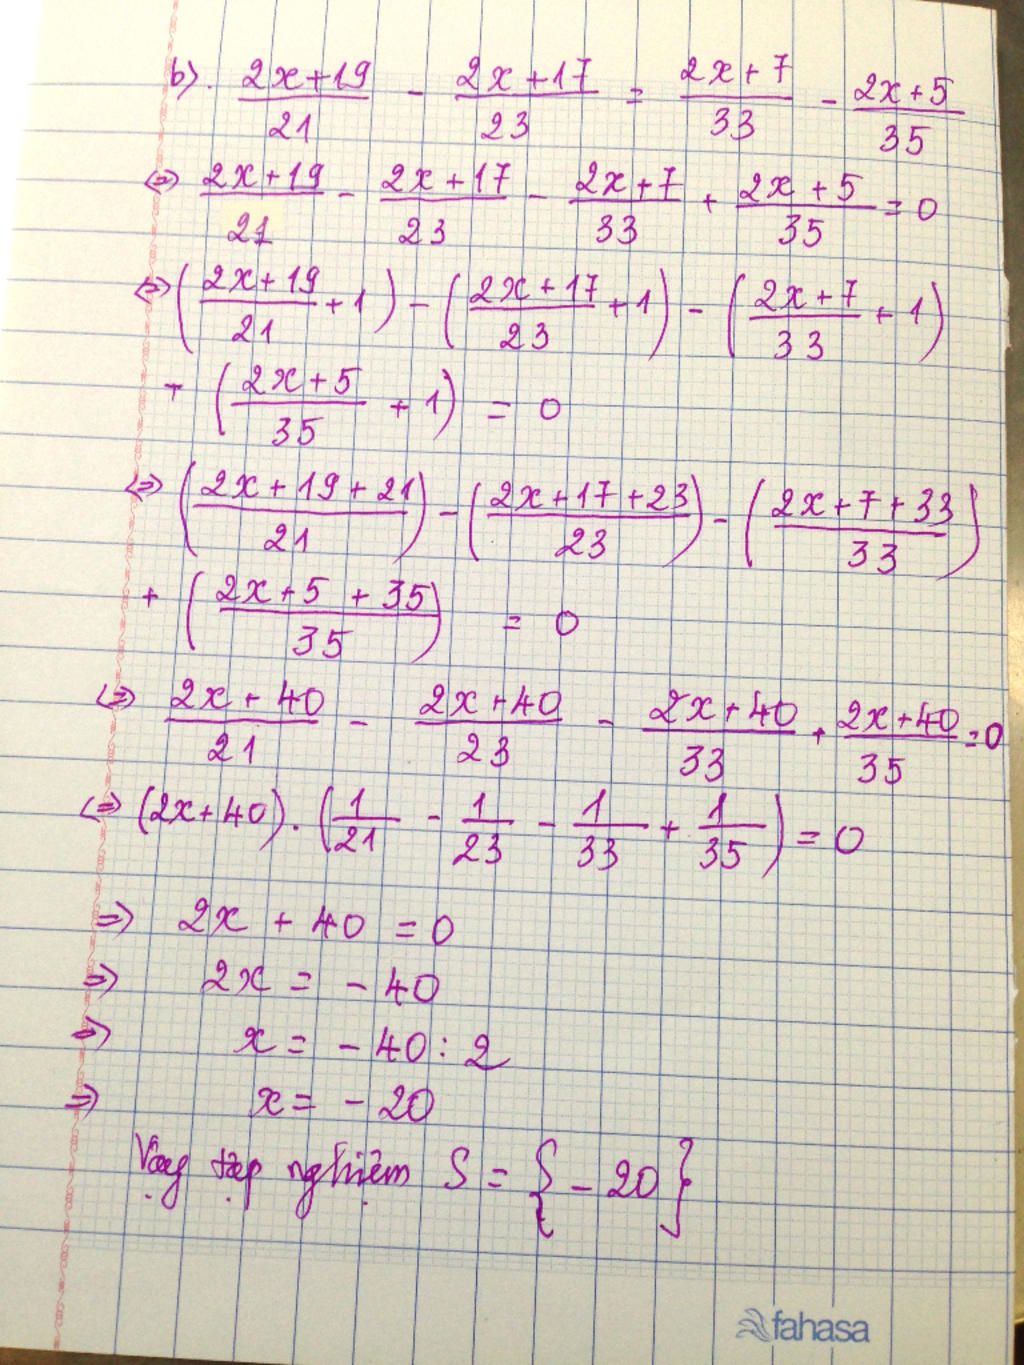 b). (2x+19)/21 - (2x+17)/23 = (2x+7)/33 - (2x+5)/35
<=> (2x+19)/21 - (2x+17)/23 - (2x+7)/33 + (2x+5)/35 = 0
<=> ((2x+19)/21 + 1) - ((2x+17)/23 + 1) - ((2x+7)/33 + 1)
+ ((2x+5)/35 + 1) = 0
<=> ((2x+19+21)/21) - ((2x+17+23)/23) - ((2x+7+33)/33)
+ ((2x+5+35)/35) = 0
<=> (2x+40)/21 - (2x+40)/23 - (2x+40)/33 + (2x+40)/35 = 0
<=> (2x+40).(1/21 - 1/23 - 1/33 + 1/35) = 0
=> 2x + 40 = 0
=> 2x = -40
=> x = -40 : 2
=> x = -20
Vậy tập nghiệm S = {-20}
fahasa